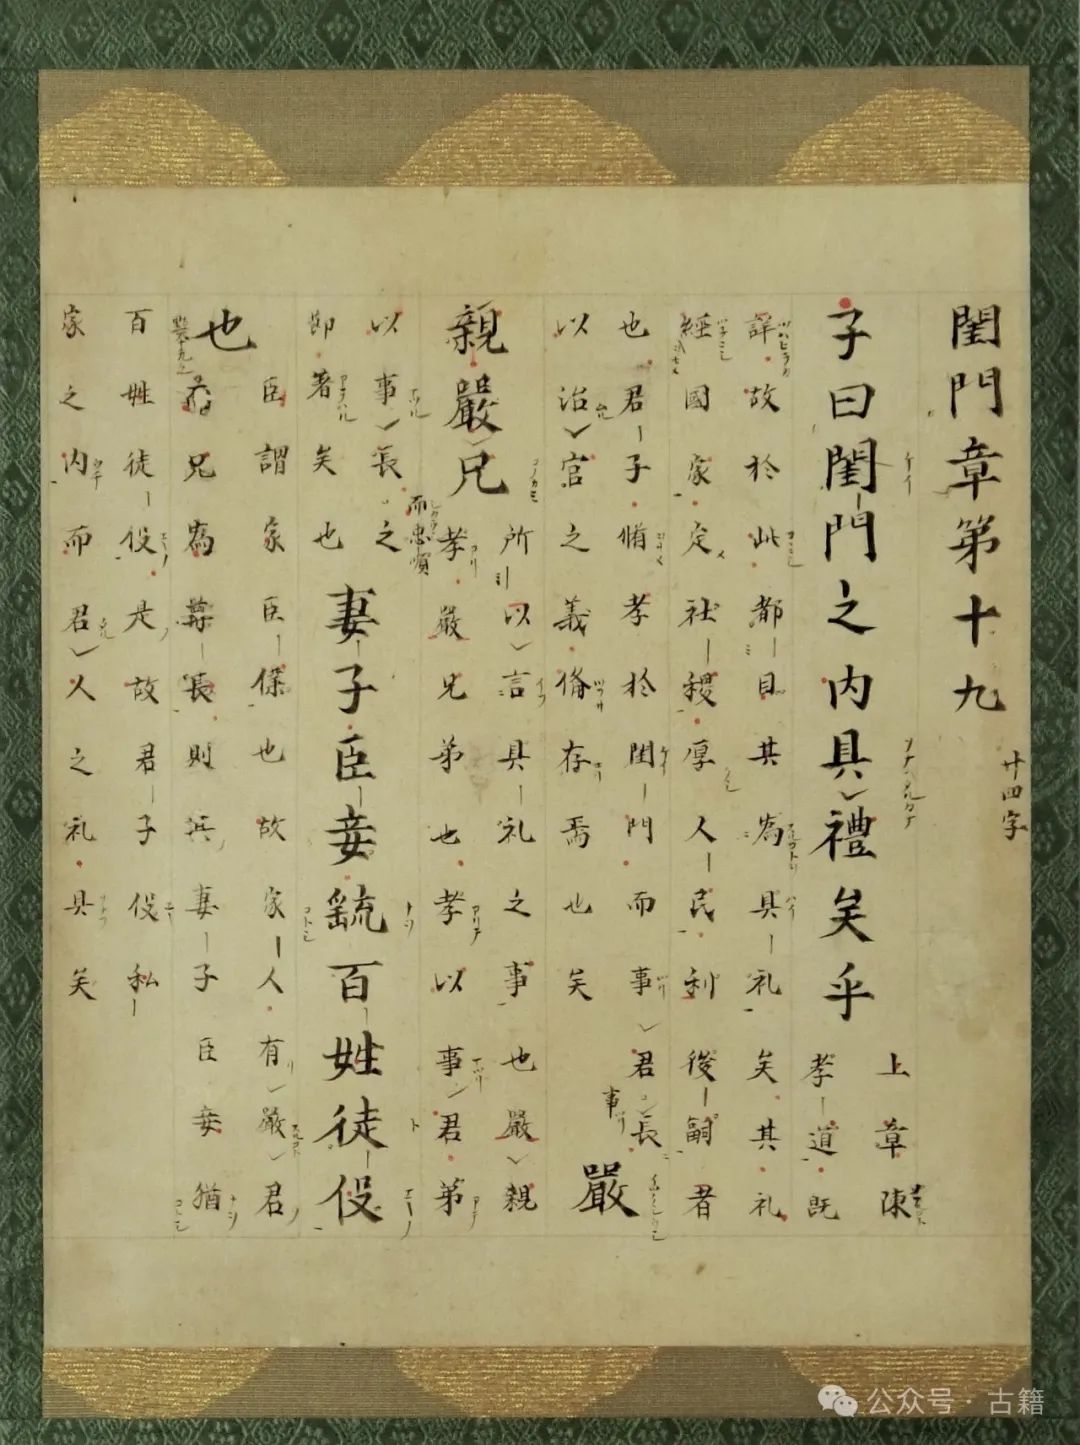 閨門章第十九
廿四字
子曰閨門之内具禮矣乎
上章陳
孝道既
詳故於此都目其為具礼矣其礼
経國家定社稷厚人民利後嗣者
也君子脩孝於閨門而事君事長
以治官之義備存焉也矣
嚴
親嚴兄
所以言具礼之事也嚴親
孝嚴兄弟也孝以事君弟
以事長之
而忠順
即著矣也
妻子臣妾繇百姓徒役
也
臣謂家臣僕也故家人有嚴君
兄為尊長則其妻子臣妾猶
百姓徒役是故君子役私
家之内而君人之礼具矣
公众号·古籍